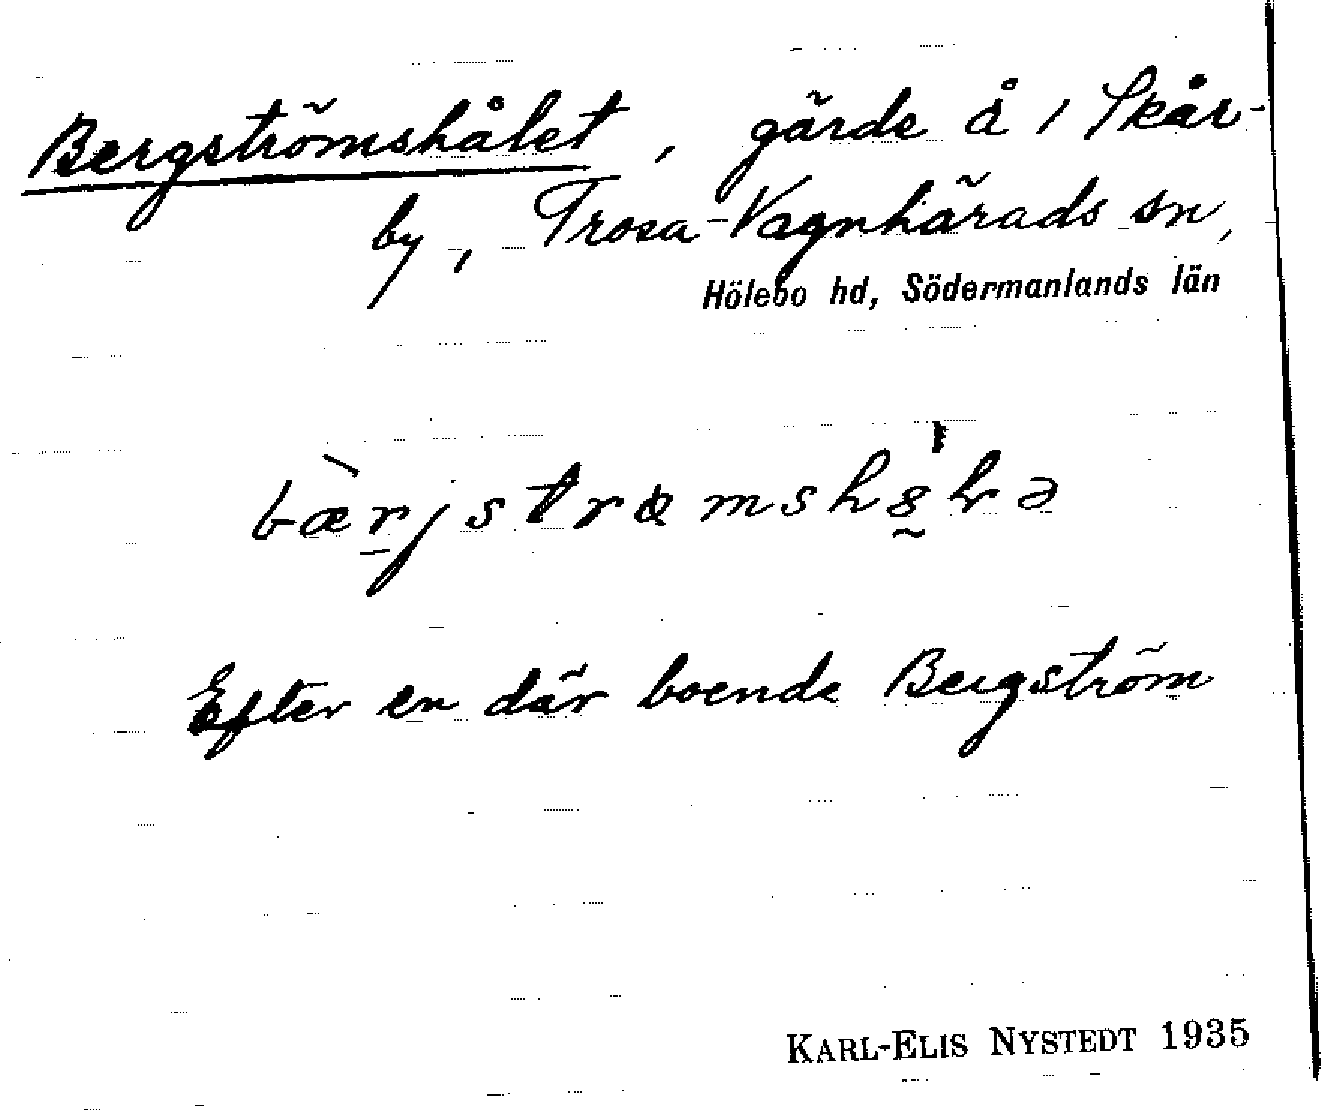 Bergströmshålet, gärde å 1 Skår-
by, Trosa-Vagnhärads sn,
Hölebo hd, Södermanlands län
Efter en där boende Bergström
KARL-ELIS NYSTEDT 1935